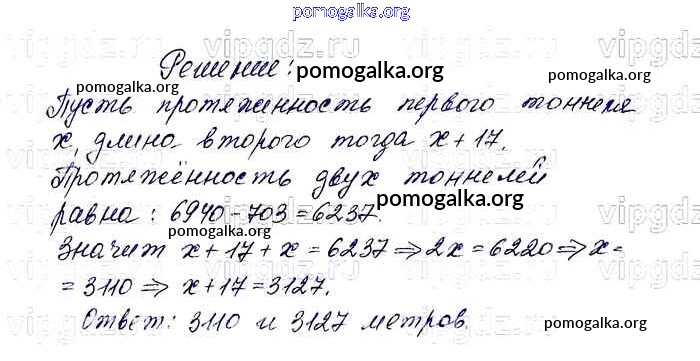 pomogalka.org
Решение:
pomogalka.org
pomogalka.org
pomogalka.org
Пусть протяженность первого тоннеля
x, длина второго тогда x+17.
Протяжённость двух тоннелей
равна: 6940-703=6237.
pomogalka.org
Значит x+17+x=6237⇒2x=6220⇒x=
=3110⇒x+17=3127.
Ответ: 3110 и 3127 метров.
pomogalka.org
pomogalka.org
vipgdz.ru